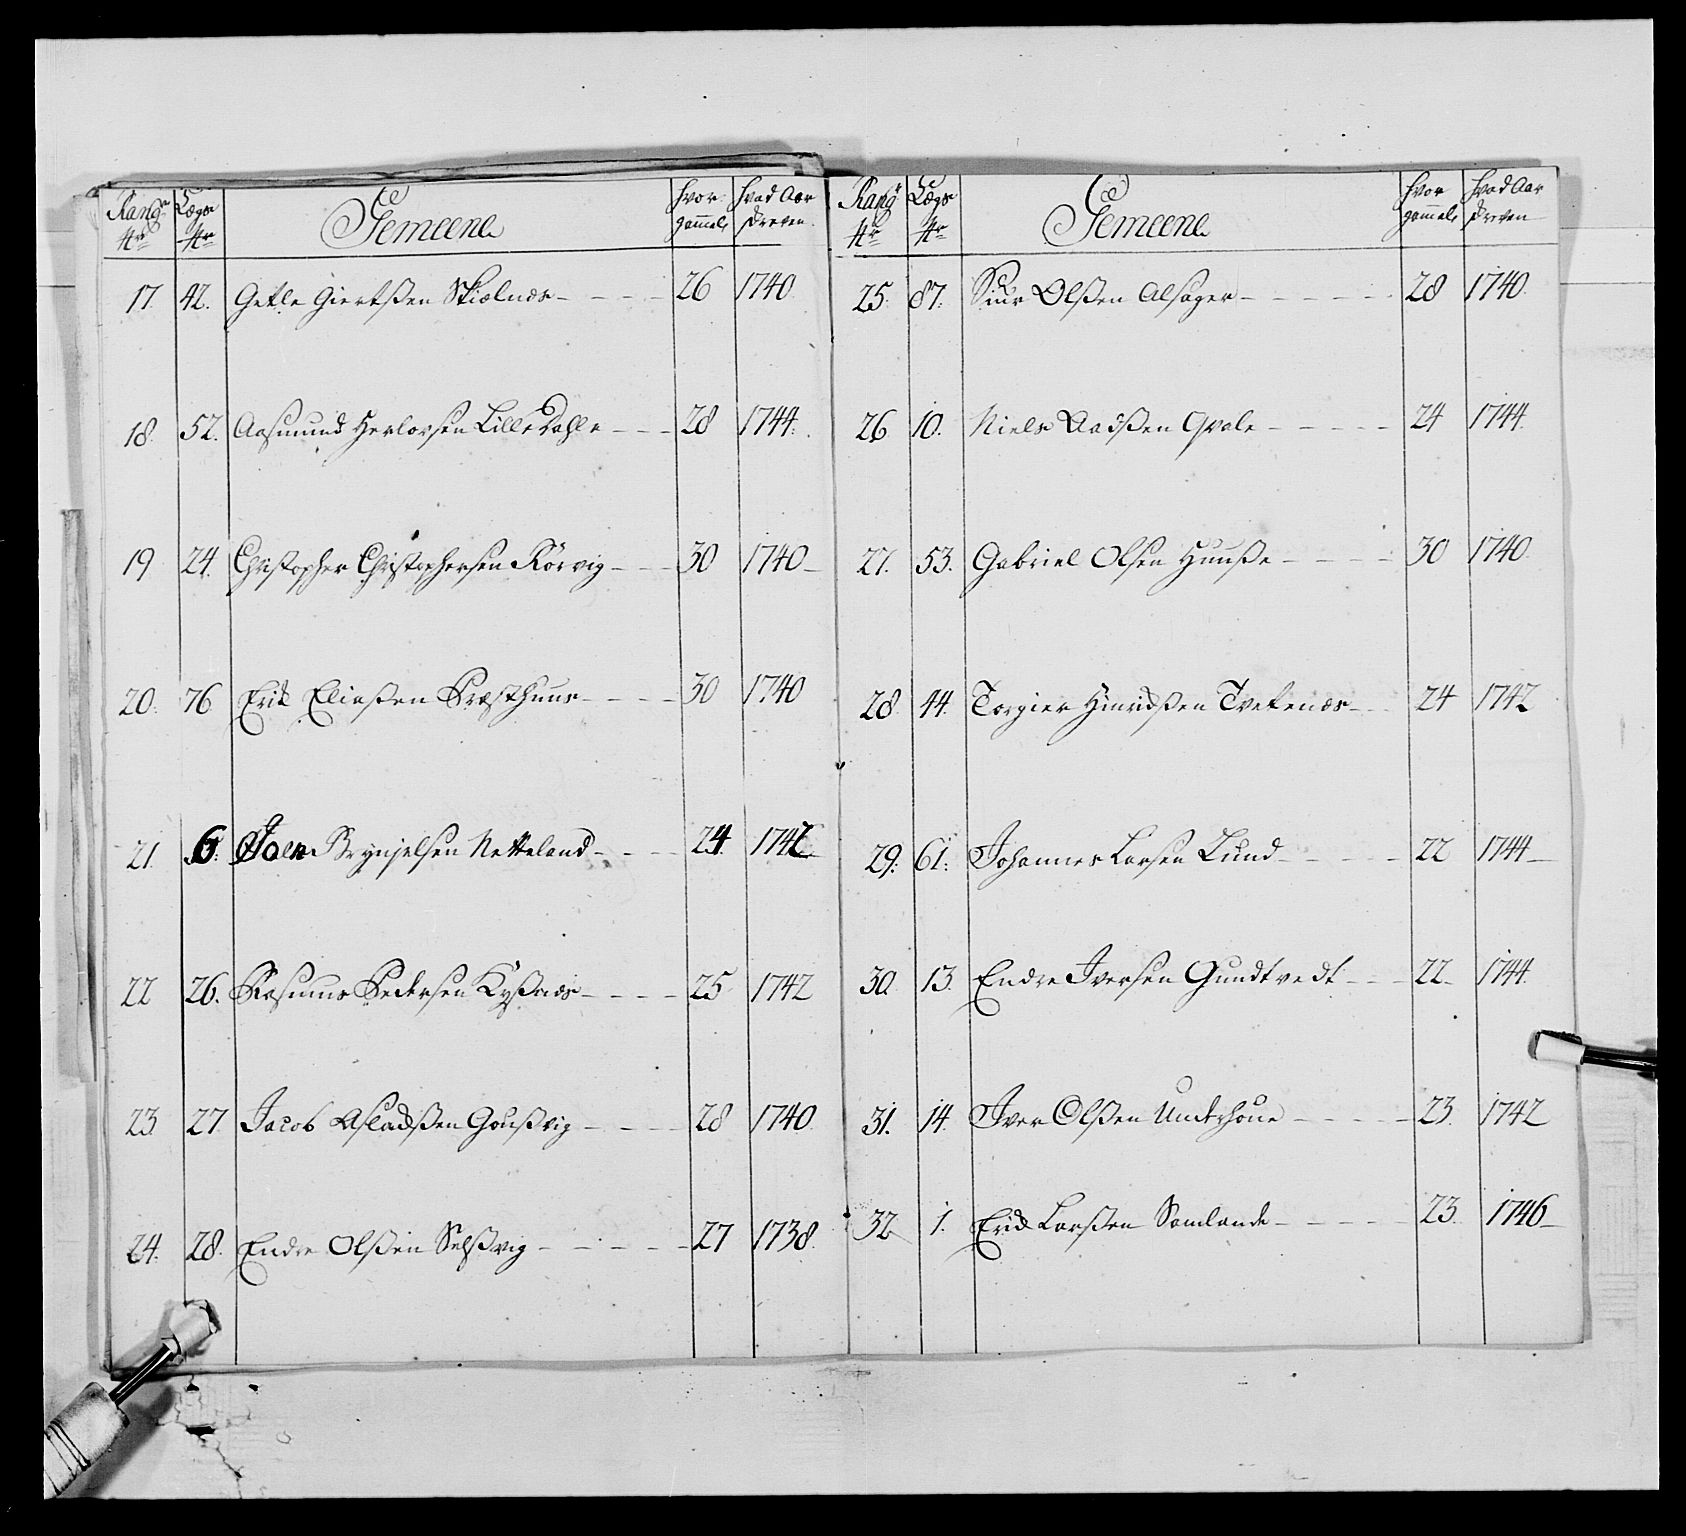 Rang Nr Lægs Nr Gemeene hvor gammel hvad Aar
17. 42. Getle Giertßen Skiælnæs 26 1740
18. 52. Aasmund Herlorsen Lille Dahle 28 1744.
19 24. Christopher Christophersen Rörvig 30 1740
20. 76 Erik Eliaßen Præsthuus 30 1740
21. 6 Joen Brynjelsen Netteland 24 1742
22 26. Rasmus Pedersen Kyßnæs 25 1742
23 27 Jacob Aslachßen Goußvig 28 1740
24. 28. Endre Olßen Selßvig 27 1738.
Rang Nr Lægs Nr Gemeene hvor gammel hvad Aar
25. 87. Siur Olßen Alsager 28 1740.
26 10. Niels Aadßen Qvale 24 1744.
27. 53. Gabriel Olsen Huuße 30 1740.
28. 44. Torgier Hinrichßen Tveitenæs 24 1742
29. 61. Johannes Larsen Lund 22 1744
30. 13. Endre Iversen Gundtvedt 22 1744.
31. 14. Iver Olßen Underhoue 23. 1742
32 1. Erich Larßen Samlande 23. 1746